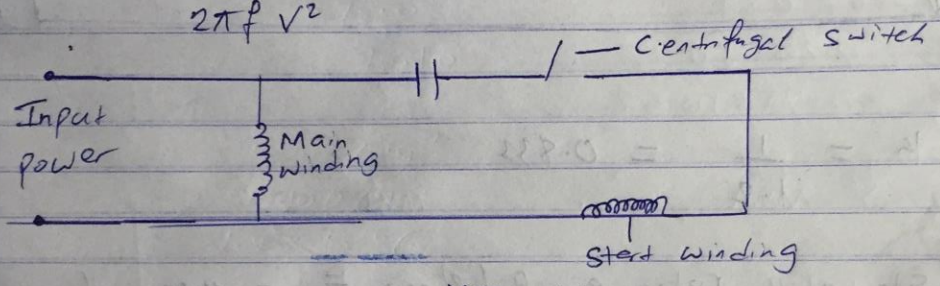 2πf V²
— Centrifugal Switch
Input
power
Main
winding
Start winding